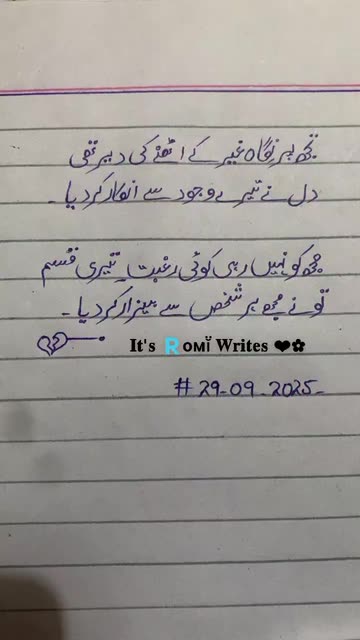 تجھ پر نگاہ غیر کے اٹھنے کی دیر تھی
دل نے تیرے وجود سے انکار کر دیا۔
مجھ کو نہیں رہی کوئی رغبت تیری قسم
تو نے مجھے ہر شخص سے بیزار کر دیا۔
It's 🆁 ᴏᴍɪ̆ Writes ❤✿
# 29-09-2025-